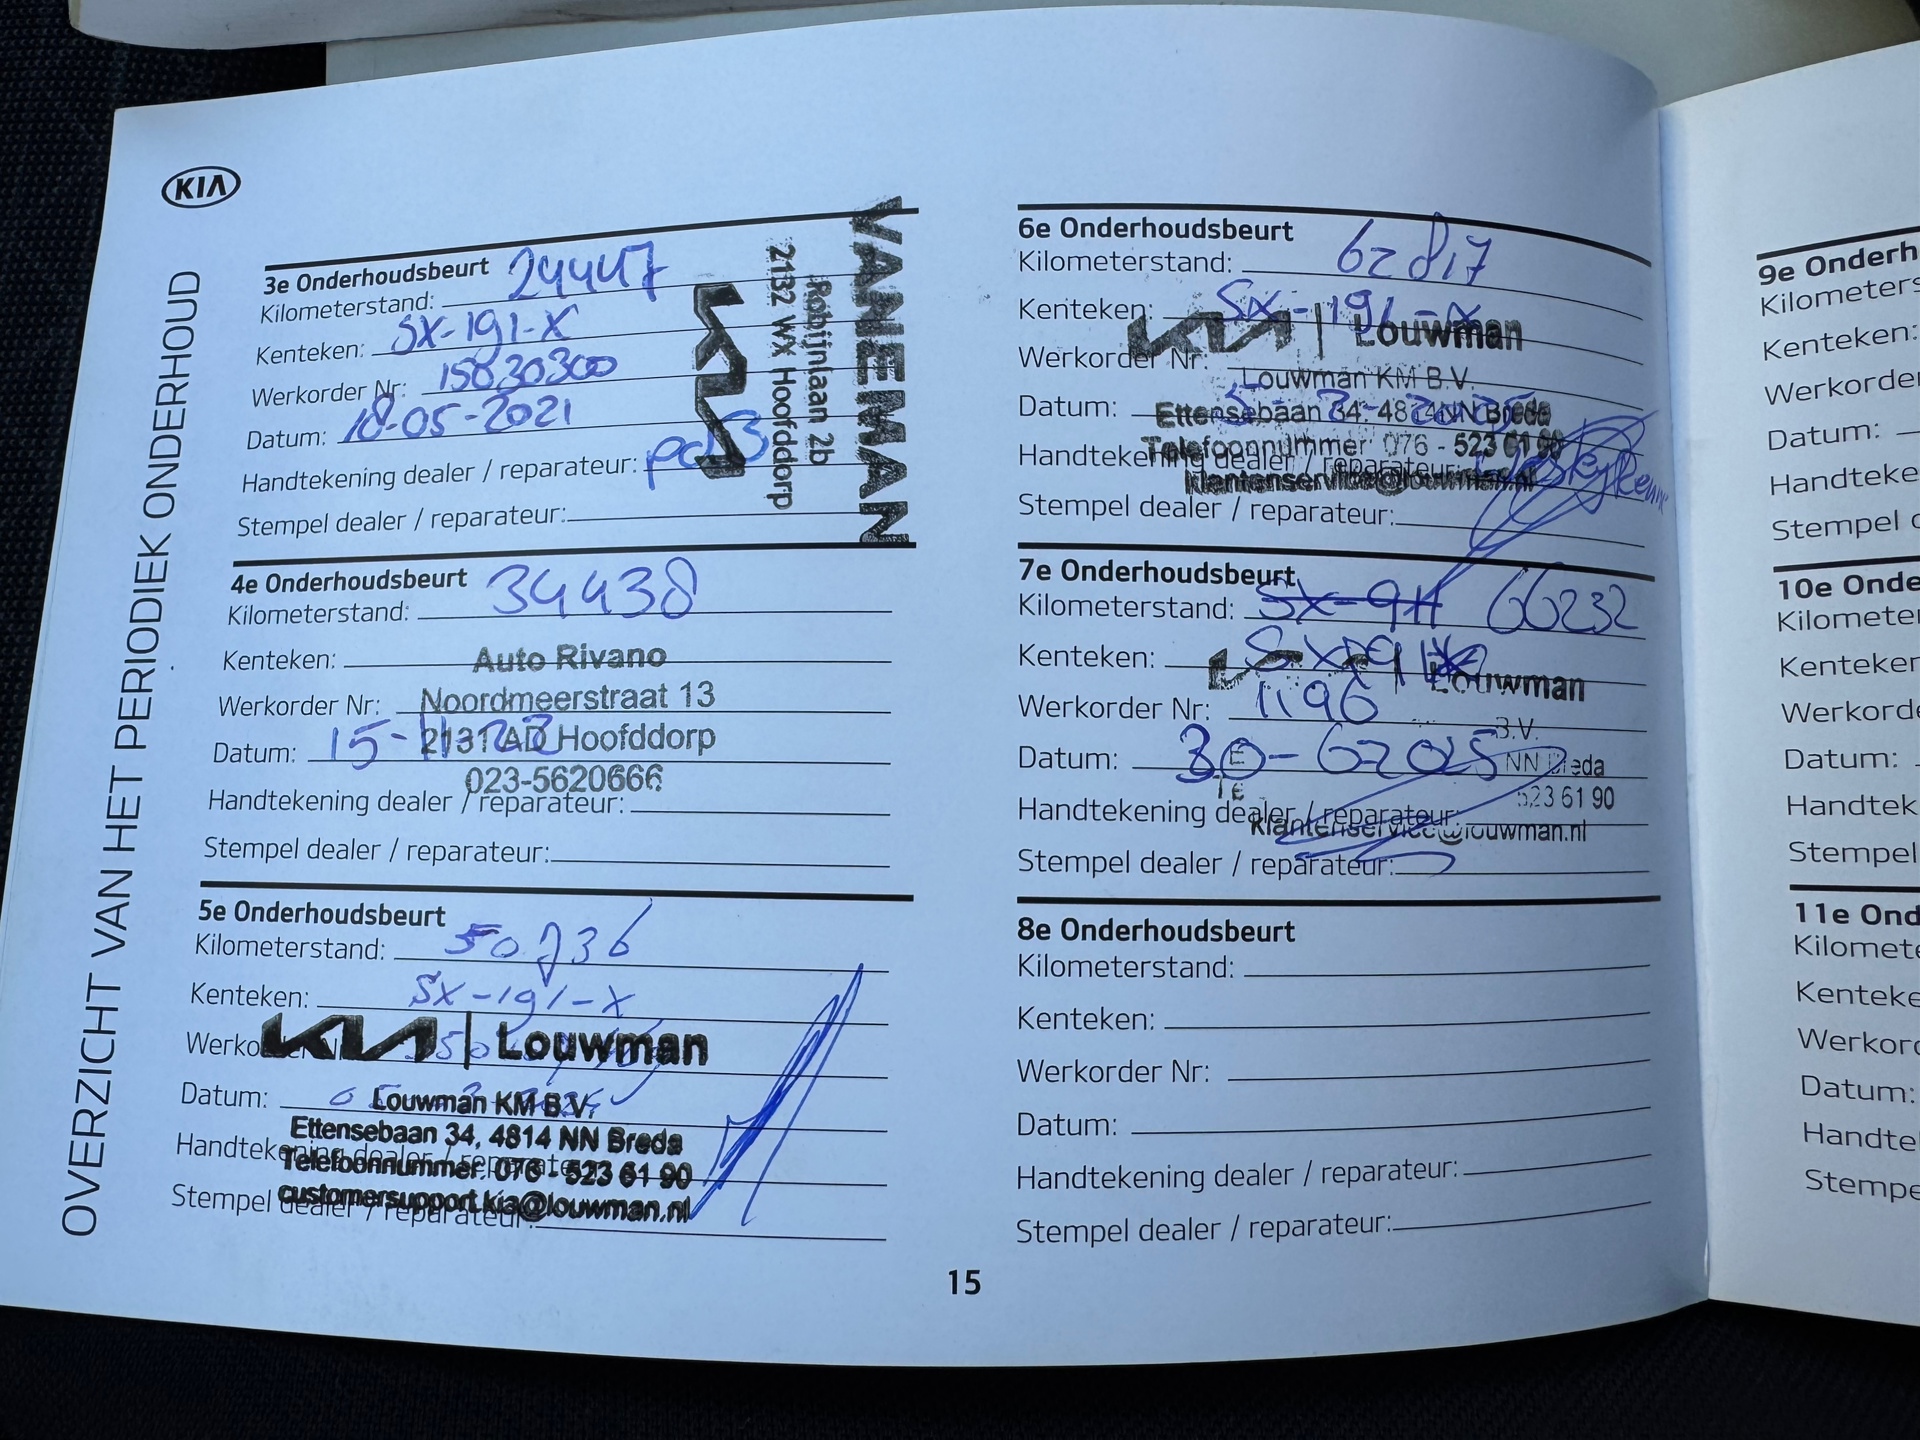 KIA
OVERZICHT VAN HET PERIODIEK ONDERHOUD
3e Onderhoudsbeurt
Kilometerstand: 24447
Kenteken: SX-191-X
Werkorder Nr: 15830300
Datum: 18-05-2021
Handtekening dealer / reparateur:
Stempel dealer / reparateur:
VANEMAN
Robijnlaan 2b
2132 WX Hoofddorp
KIA
4e Onderhoudsbeurt
Kilometerstand: 34438
Kenteken:
Werkorder Nr:
Datum: 15-11-22
Handtekening dealer / reparateur:
Stempel dealer / reparateur:
Auto Rivano
Noordmeerstraat 13
2131 AD Hoofddorp
023-5620666
5e Onderhoudsbeurt
Kilometerstand: 50.736
Kenteken: SX-191-X
Datum:
Handtekening dealer / reparateur:
Stempel dealer / reparateur:
KIA | Louwman
Louwman KM B.V.
Ettensebaan 34, 4814 NN Breda
Telefoonnummer: 076 - 523 61 90
customersupport.kia@louwman.nl
6e Onderhoudsbeurt
Kilometerstand: 62817
Kenteken: SX-191-X
Werkorder Nr:
Datum:
Handtekening dealer / reparateur:
Stempel dealer / reparateur:
KIA | Louwman
Louwman KM B.V.
Ettensebaan 34, 4814 NN Breda
Telefoonnummer: 076 - 523 61 90
klantenservice@louwman.nl
7e Onderhoudsbeurt
Kilometerstand: SX-9H 66232
Kenteken:
Werkorder Nr: 1196
Datum: 30-62025
Handtekening dealer / reparateur:
Stempel dealer / reparateur:
KIA | Louwman
B.V.
NN Breda
523 61 90
klantenservice@louwman.nl
8e Onderhoudsbeurt
Kilometerstand:
Kenteken:
Werkorder Nr:
Datum:
Handtekening dealer / reparateur:
Stempel dealer / reparateur:
15
9e Onderh
Kilometers
Kenteken:
Werkorder
Datum:
Handteke
Stempel d
10e Onde
Kilometer
Kenteken
Werkorde
Datum:
Handtek
Stempel
11e Ond
Kilomete
Kenteke
Werkord
Datum:
Handte
Stempe